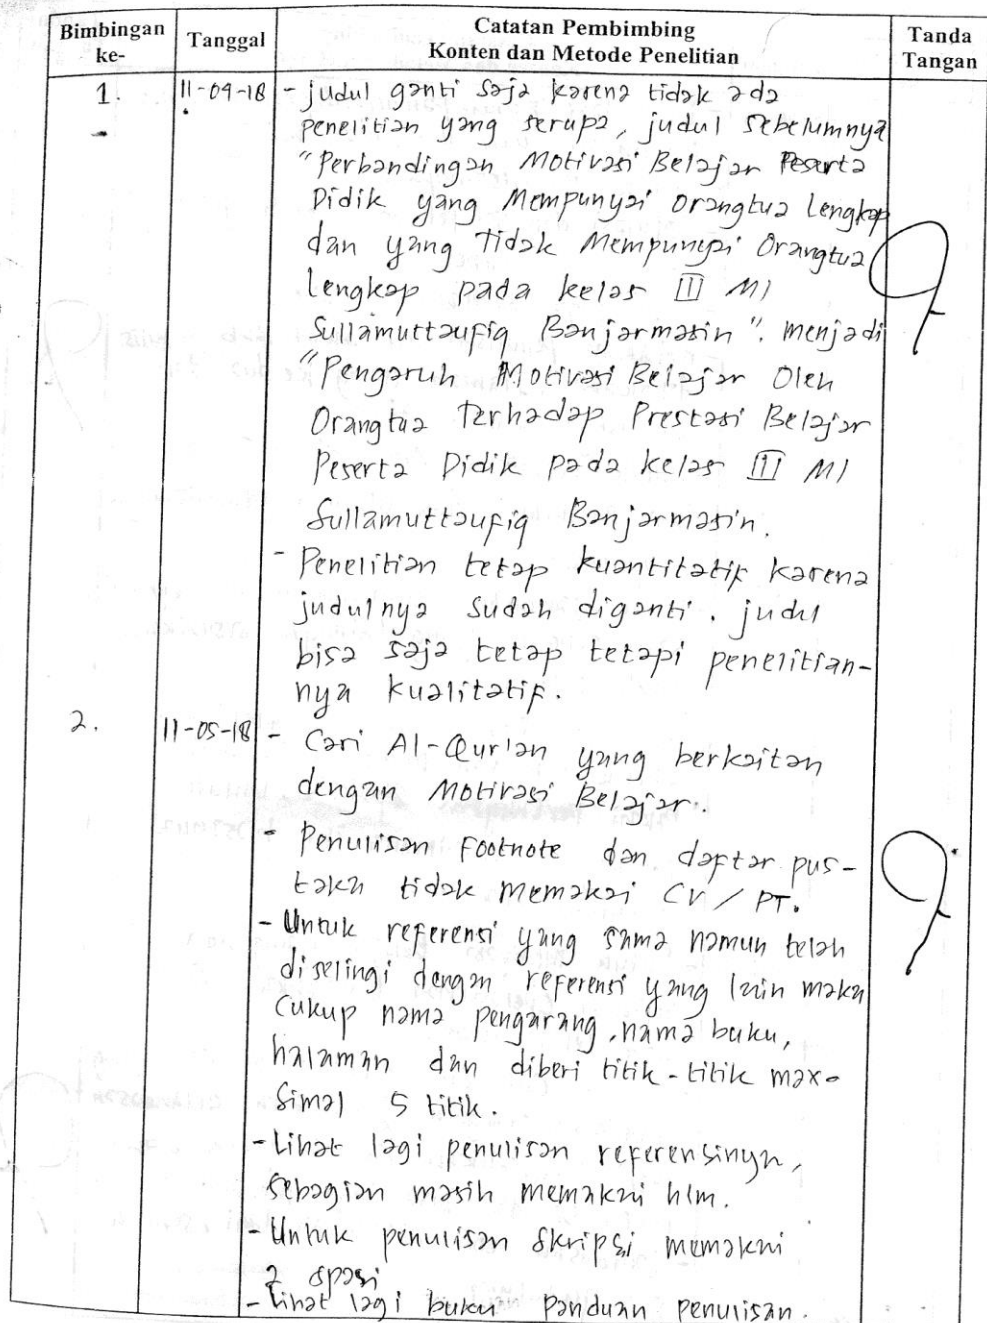 Bimbingan ke-
Tanggal
Catatan Pembimbing
Konten dan Metode Penelitian
Tanda Tangan
1. 11-04-18 - judul ganti saja karena tidak ada
penelitian yang serupa, judul sebelumnya
"Perbandingan Motivasi Belajar Peserta
Didik yang Mempunyai Orangtua Lengkap
dan yang Tidak Mempunyai Orangtua
Lengkap pada kelas III MI
Sullamuttaufiq Banjarmasin". menjadi
"Pengaruh Motivasi Belajar Oleh
Orangtua Terhadap Prestasi Belajar
Peserta Didik pada kelas III MI
Sullamuttaufiq Banjarmasin.
- Penelitian tetap kuantitatif karena
judulnya sudah diganti. judul
bisa saja tetap tetapi penelitian-
nya kualitatif.
2. 11-05-18 - Cari Al-Qur'an yang berkaitan
dengan Motivasi Belajar.
- Penulisan Footnote dan daftar pus-
taka tidak memakai CV/PT.
- Untuk referensi yang sama namun telah
diselingi dengan referensi yang lain maka
cukup nama pengarang, nama buku,
halaman dan diberi titik-titik max-
simal 5 titik.
- Lihat lagi penulisan referensinya,
sebagian masih memakai hlm.
- Untuk penulisan skripsi memakai
2 spasi
- Lihat lagi buku panduan penulisan.